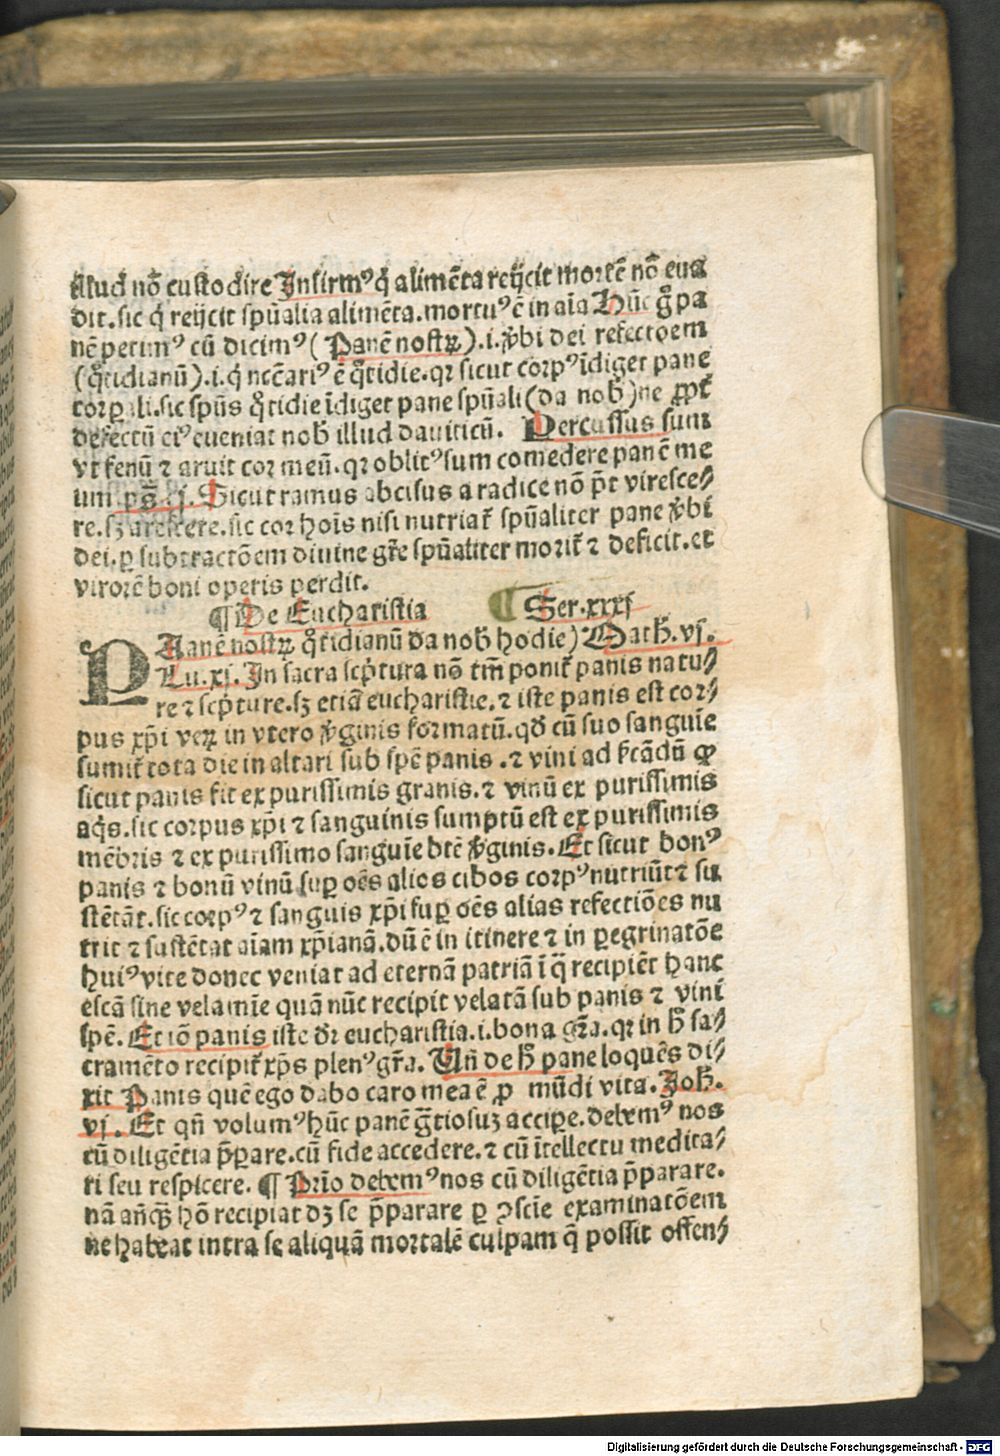 illud nō custodire Infirmꝰ q̇ alimēta reijcit mortē nō eua
dit. sic q̇ reijcit spūalia alimēta. mortuꝰ ē in aīa Hūc g̊ pa
nē petimꝰ cū dicimꝰ (Panē nostꝝ). i. v̓bi dei refectōem
(q̊tidianū). i. q̇ ncc̄ariꝰ ē q̊tidie. qꝛ sicut corpꝰ īdiget pane
corꝑali. sic spūs q̊tidie īdiget pane spūali (da nob̄) ne ꝓpt̄
defectū eiꝰ eueniat nob̄ illud dauiticū. Percussus sum
vt fenū ⁊ aruit cor meū. qꝛ oblitꝰ sum comedere panē me
um ps̄. cj. Sicut ramus abcisus a radice nō pt̄ viresce⸗
re. sꝫ arescere. sic cor hoīs nisi nutriat̄ spūaliter pane v̓bi
dei. ꝑ subtractōem diuine gr̄e spūaliter morit̄ ⁊ deficit. et
virorē boni operis perdit.
¶ De Eucharistia ¶ Ser. xxxj
PAanē nostꝝ q̊tidianū da nob̄ hodie) Math̄. vj.
Lu. xj. In sacra scp̄tura nō tm̄ ponit̄ panis natu⸗
re ⁊ scp̄ture. sꝫ etiā eucharistie. ⁊ iste panis est cor⸗
pus xp̄i veꝝ in vtero v̓ginis formatū. qd̄ cū suo sanguīe
sumit̄ tota die in altari sub spē panis . ⁊ vini ad st̄cādū ꝙ
sicut panis fit ex purissimis granis. ⁊ vinū ex purissimis
aq̄s. sic corpus xp̄i ⁊ sanguinis sumptū est ex purissimis
mēbris ⁊ ex purissimo sanguīe btē v̓ginis. Et sicut bonꝰ
panis ⁊ bonū vinū suꝑ oēs alios cibos corpꝰ nutriūt ⁊ su
stētāt. sic corpꝰ ⁊ sanguis xp̄i suꝑ oēs alias refectiōes nu
trit ⁊ sustētat aīam xp̄ianā. dū ē in itinere ⁊ in ꝑegrinatōe
huiꝰ vite donec veniat ad eternā patriā ī q̄ recipiēt hanc
escā sine velamīe quā nūc recipit velatā sub panis ⁊ vini
spē. Et iō panis iste dr̄ eucharistia. i. bona gr̄a. qꝛ in h̄ sa⸗
cramēto recipit̄ xp̄s plenꝰ gr̄a. Vn̄ de h̄ pane loquēs di⸗
xit Panis quē ego dabo caro mea ē ꝓ mūdi vita. Joh̄.
vj. Et qn̄ volumꝰ hūc panē g̅tiosuꝫ accipe. debemꝰ nos
cū diligētia p̄ꝑare. cū fide accedere. ⁊ cū ītellectu medita⸗
ri seu respicere. ¶ Prīo debemꝰ nos cū diligētia p̄parare.
nā an̄qꝫ hō recipiat dꝫ se p̄parare ꝑ ꝯscīe examinatōem
ne habeat intra se aliquā mortalē culpam q̄ possit offen⸗
Digitalisierung gefördert durch die Deutsche Forschungsgemeinschaft - DFG